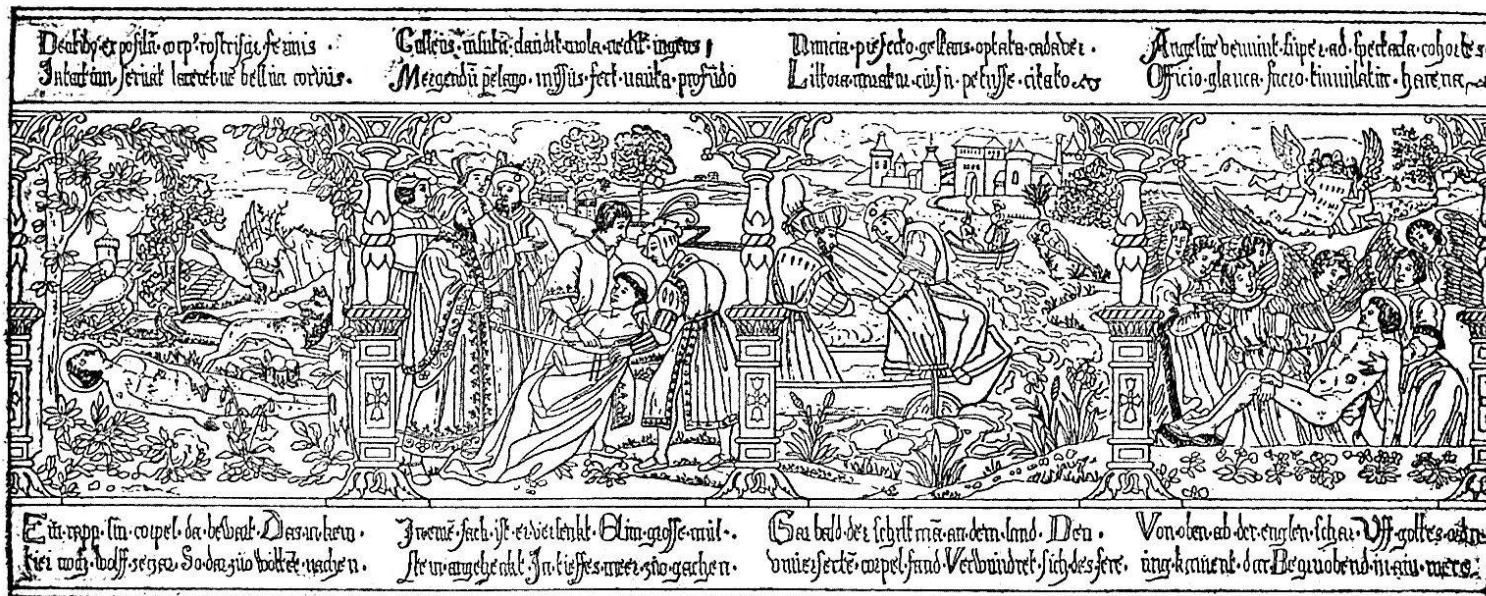 Dentibꝰ·expositū·corpꝰ·rostrisqꝫ·ferinis·
Intactum·servat·laceret·ne·bellua·corvus·
Culleus·insutū·claudit·mola·nectit·ingens
Mergendū pelago·missus·fert·nauita·profūdo
Nuncia·prefecto·gestans·optata·cadaver·
Littora·miratur·cursū·petiisse·citato
Angelice veniunt·super·ad·spectacla·cohortes
Officio·glauca·sacro·tumulatur·harena
Ein·rapp·sin·corpel·da·bewart·Das·in·kein·
tier·noch·wolff·zerzar·So·dar·zuo·woltent·nachen·
In·einē·sack·ist·er·versenkt·Ein·grosse·mül·
stein·angehenkt·In·tieffes·meer·zuo·gachen·
Gar bald·der schiffmā·an·dem·land·Den·
vnuersertē·corpel·fand·Verwundret·sich·des·sere·
Von·oben·ab·der·englen·schar·Uff·gottes·ordn
ung·kament·dar·Begrabend·in·am·mere·